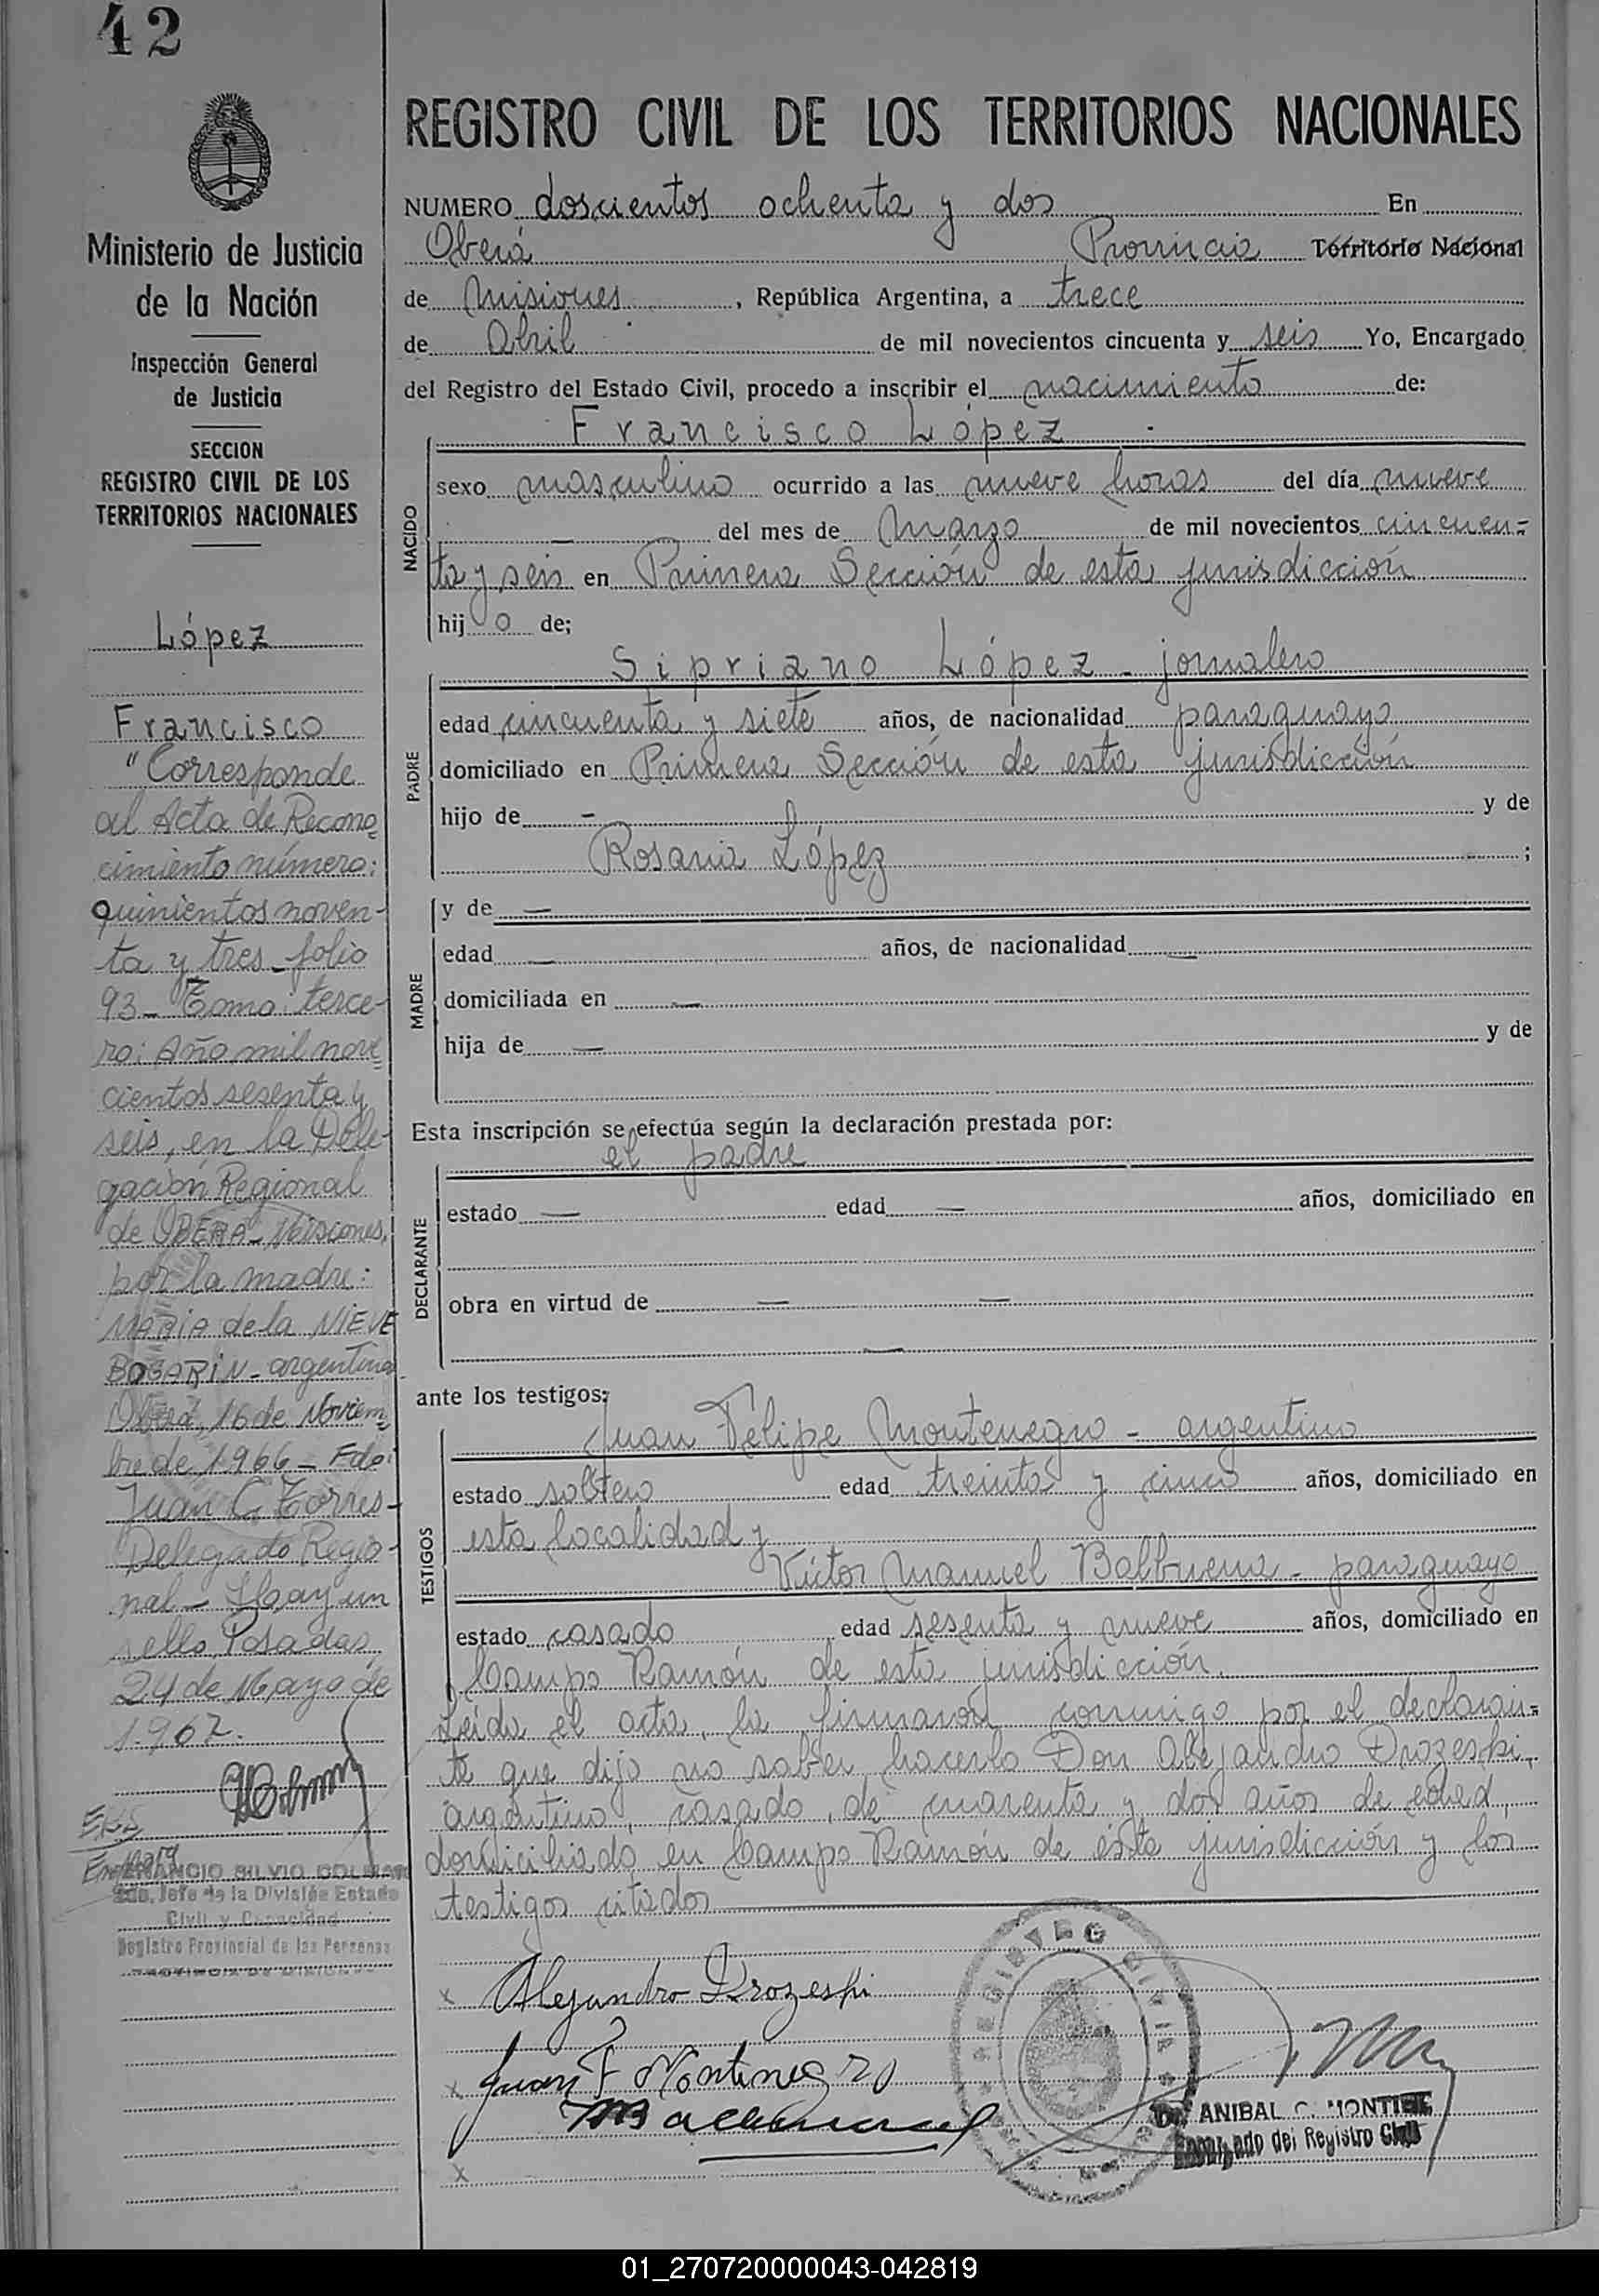 42
Ministerio de Justicia
de la Nación
Inspección General
de Justicia
SECCION
REGISTRO CIVIL DE LOS
TERRITORIOS NACIONALES
López
Francisco
"Corresponde
al Acta de Recono-
cimiento número:
quinientos noven-
ta y tres folio
93- Tomo: terce-
ro: Año mil nove
cientos sesenta y
seis, en la Dele-
gación Regional
de OBERA- Misiones,
por la madre:
MARIA de la NIEVE
BOGARIN- argentina
Oberá, 16 de Noviem
bre de 1966- Fdo:
Juan C. Torres-
Delegado Regio-
nal- Hay un
sello, Posadas
24 de Mayo de
1967.
SILVIO
Jefe de la División Estado
Civil y Capacidad
Registro Provincial de las Personas
REGISTRO CIVIL DE LOS TERRITORIOS NACIONALES
NUMERO doscientos ochenta y dos En
Oberá Provincia Territorio Nacional
de Misiones, República Argentina, a trece
de Abril de mil novecientos cincuenta y seis Yo, Encargado
del Registro del Estado Civil, procedo a inscribir el nacimiento de:
NACIDO
Francisco López
sexo masculino ocurrido a las nueve horas del día nueve
— del mes de Marzo de mil novecientos cincuen=
ta y seis en Primera Sección de esta jurisdicción
hijo de;
PADRE
Sipriano López - jornalero
edad cincuenta y siete años, de nacionalidad paraguaya
domiciliado en Primera Sección de esta jurisdicción
hijo de — y de
Rosaria López ;
MADRE
y de —
edad — años, de nacionalidad —
domiciliada en —
hija de — y de
Esta inscripción se efectúa según la declaración prestada por:
DECLARANTE
el padre
estado — edad — años, domiciliado en
obra en virtud de — —
—
ante los testigos:
TESTIGOS
Juan Felipe Montenegro - argentino
estado soltero edad treinta y cinco años, domiciliado en
esta localidad y
Victor Manuel Balbuena - paraguayo
estado casado edad sesenta y nueve años, domiciliado en
Campo Ramón de esta jurisdicción.
Leida el acta, la firmaron conmigo por el declaran=
te que dijo no saber hacerlo Don Alejandro Drozeski,
argentino, casado, de cuarenta y dos años de edad,
domiciliado en Campo Ramón de ésta jurisdicción y los
testigos citados
x Alejandro Drozeski
x Juan F Montenegro
x
REGISTRO CIVIL
Dr. ANIBAL C. MONTIEL
Encargado del Registro Civil
01_270720000043-042819